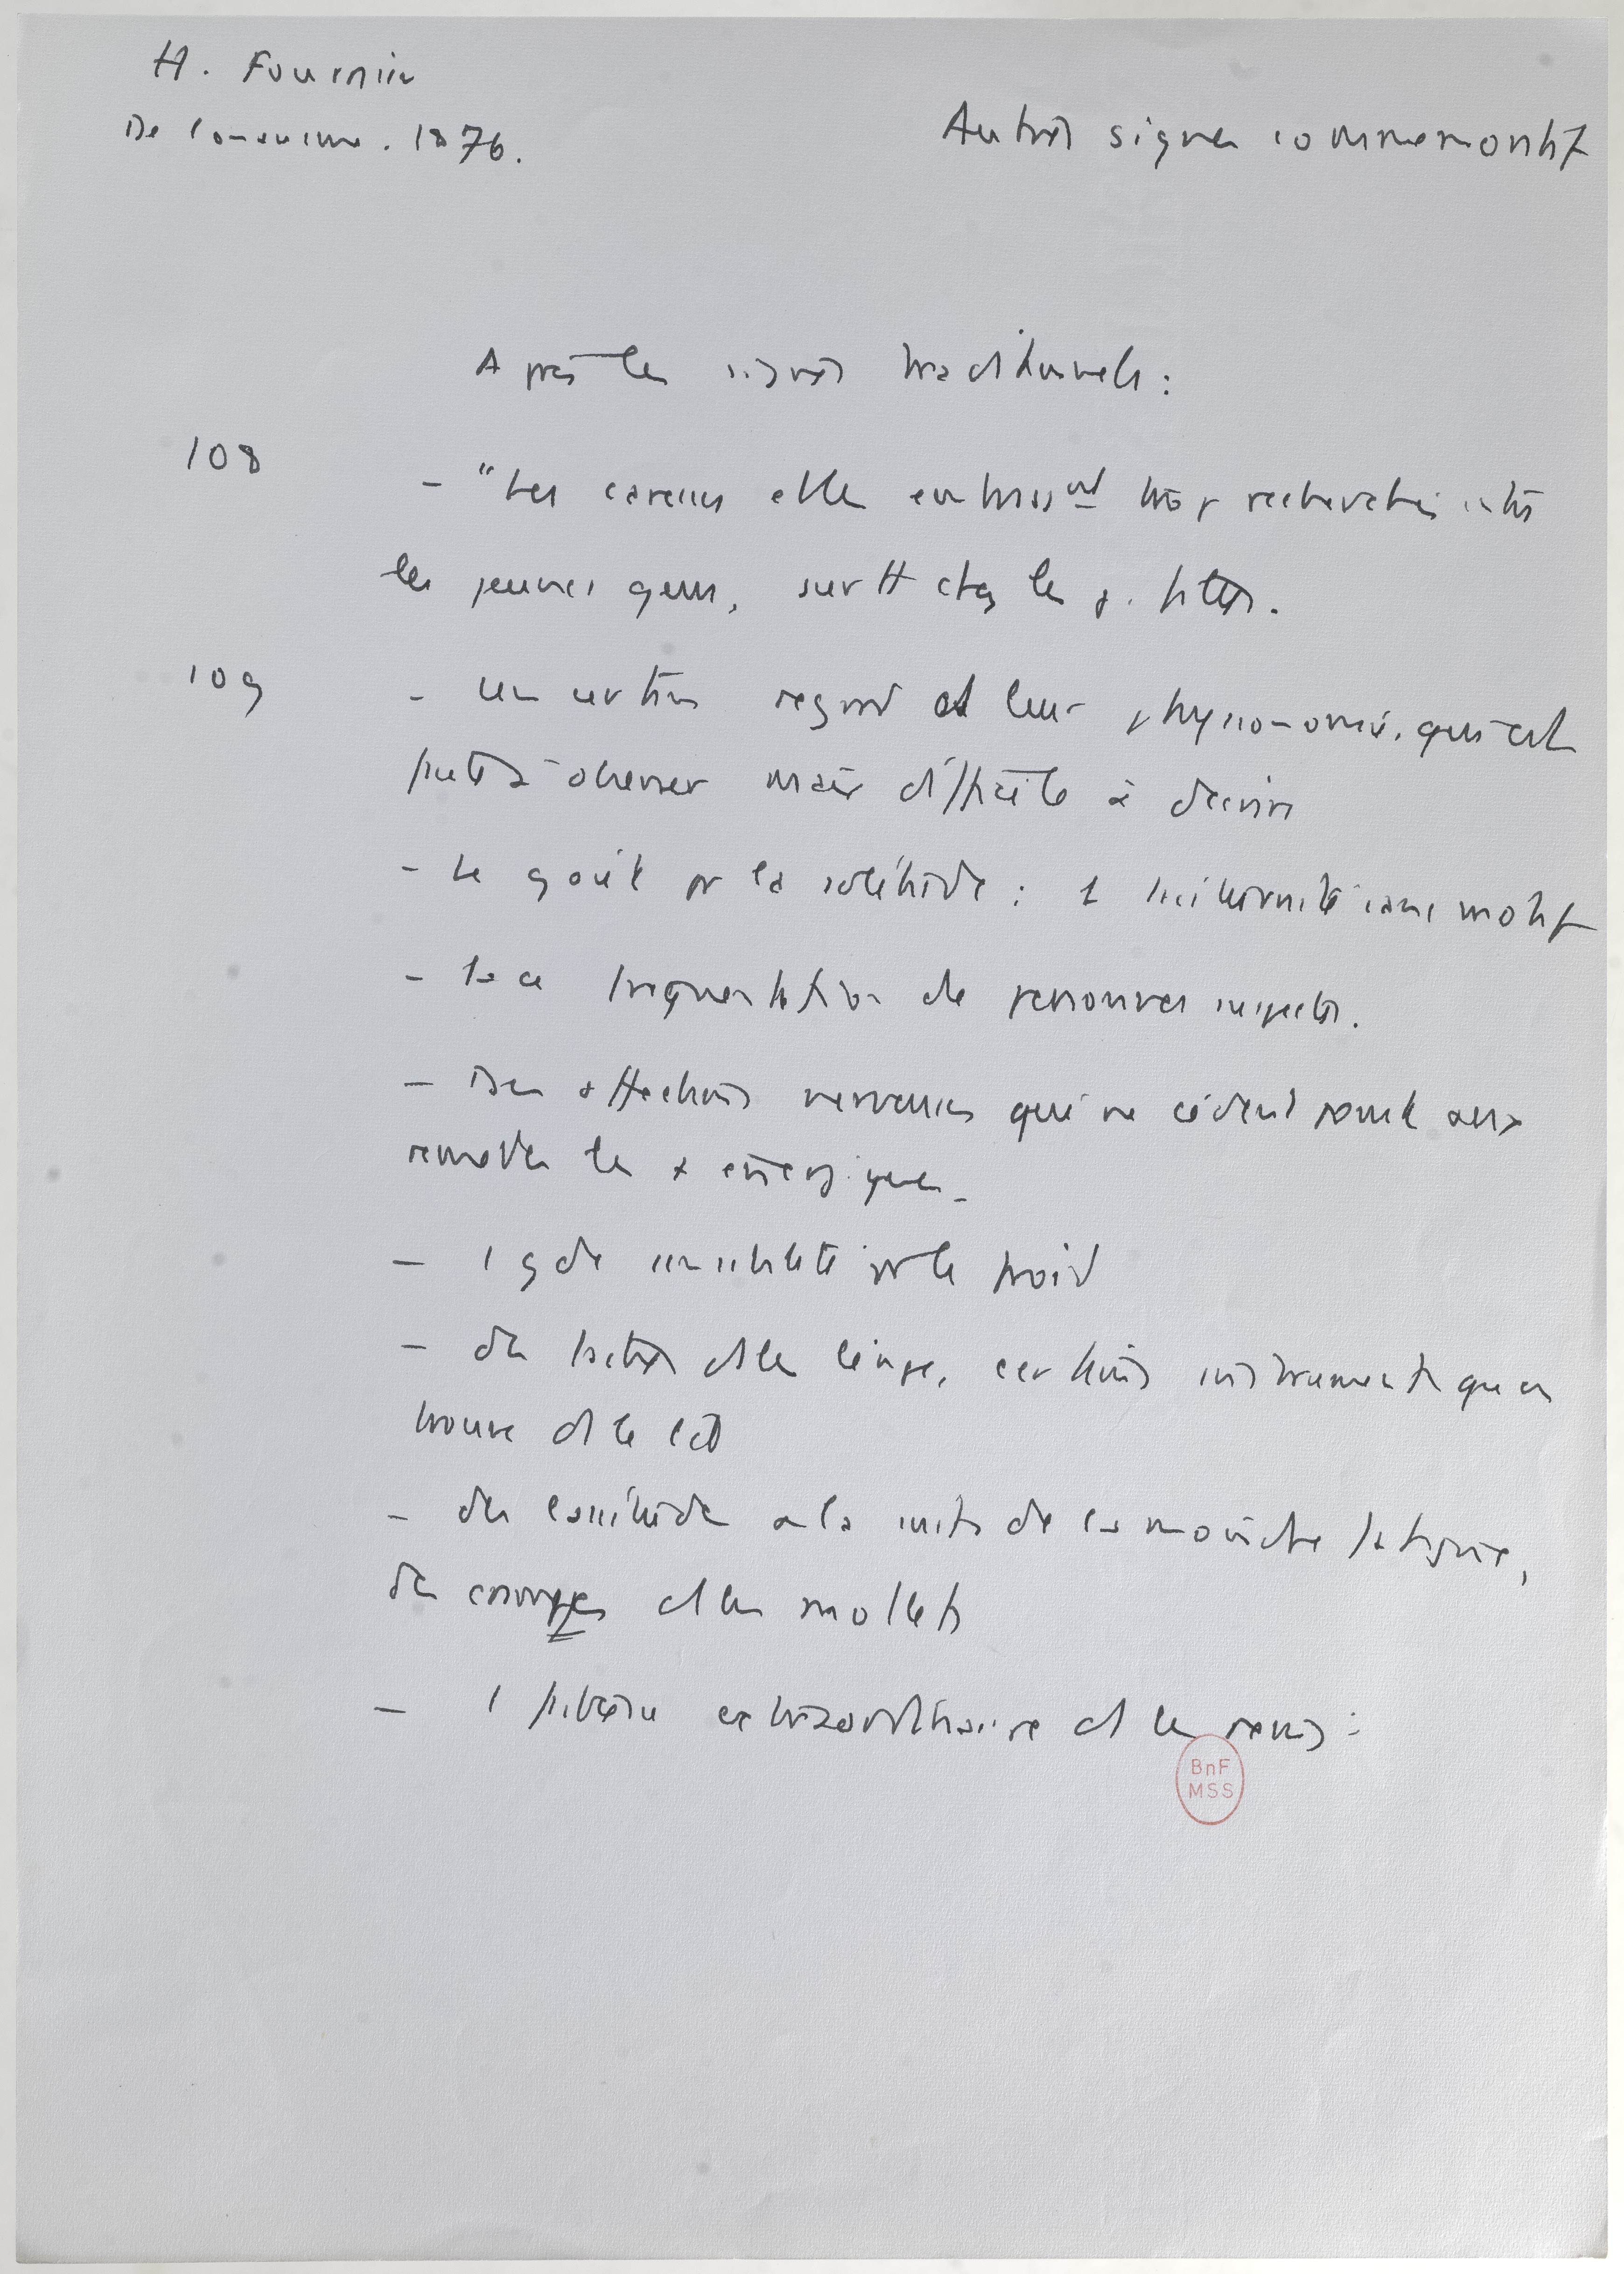 H. Fournier
De l'onanisme. 1876.
Autres signes commémoratifs
Après les signes traditionnels :
108
- "Les caresses et les embrassmt trop recherchés entre
les jeunes gens, surtt chez les j. filles.
109
- un certain regard et leur physionomie, qui est
facile à observer mais difficile à décrire
- Le goût pr la solitude : 1 taciturnité sans motif
- La fréquentation de personnes suspectes.
- Des affections nerveuses qui ne cèdent point aux
remèdes les + énergiques.
- 1 gde sensibilité pr le froid
- des taches ds le linge, certains instruments qu'on
trouve ds le lit
- des lassitudes à la suite de la moindre fatigue,
des crampes ds les mollets
- 1 faiblesse extraordinaire ds les reins :
BnF
MSS